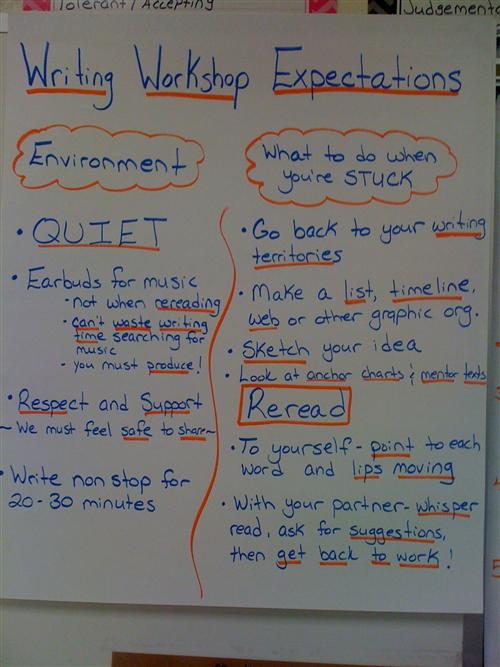 Tolerant / Accepting
Judgementa
Writing Workshop Expectations
Environment
• QUIET
• Earbuds for music
- not when rereading
- can't waste writing
time searching for
music
- you must produce!
• Respect and Support
~ We must feel safe to share ~
• Write non stop for
20-30 minutes
What to do when
you're STUCK
• Go back to your writing
territories
• Make a list, timeline,
web or other graphic org.
• Sketch your idea
• Look at anchor charts & mentor texts
Reread
• To yourself - point to each
word and lips moving
• With your partner - whisper
read, ask for suggestions,
then get back to work!